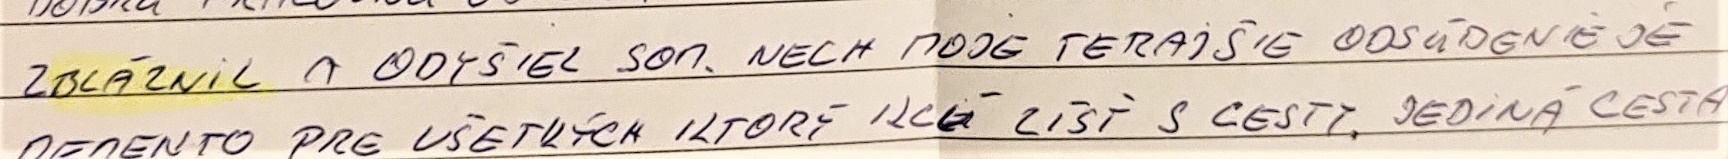 ZBLÁZNIL A ODYŠIEL SOM. NECH MOJE TERAJŠIE ODSÚDENIE JE
MEMENTO PRE VŠETKÝCH KTORÝ ZÍSŤ S CESTY. JEDINÁ CESTA